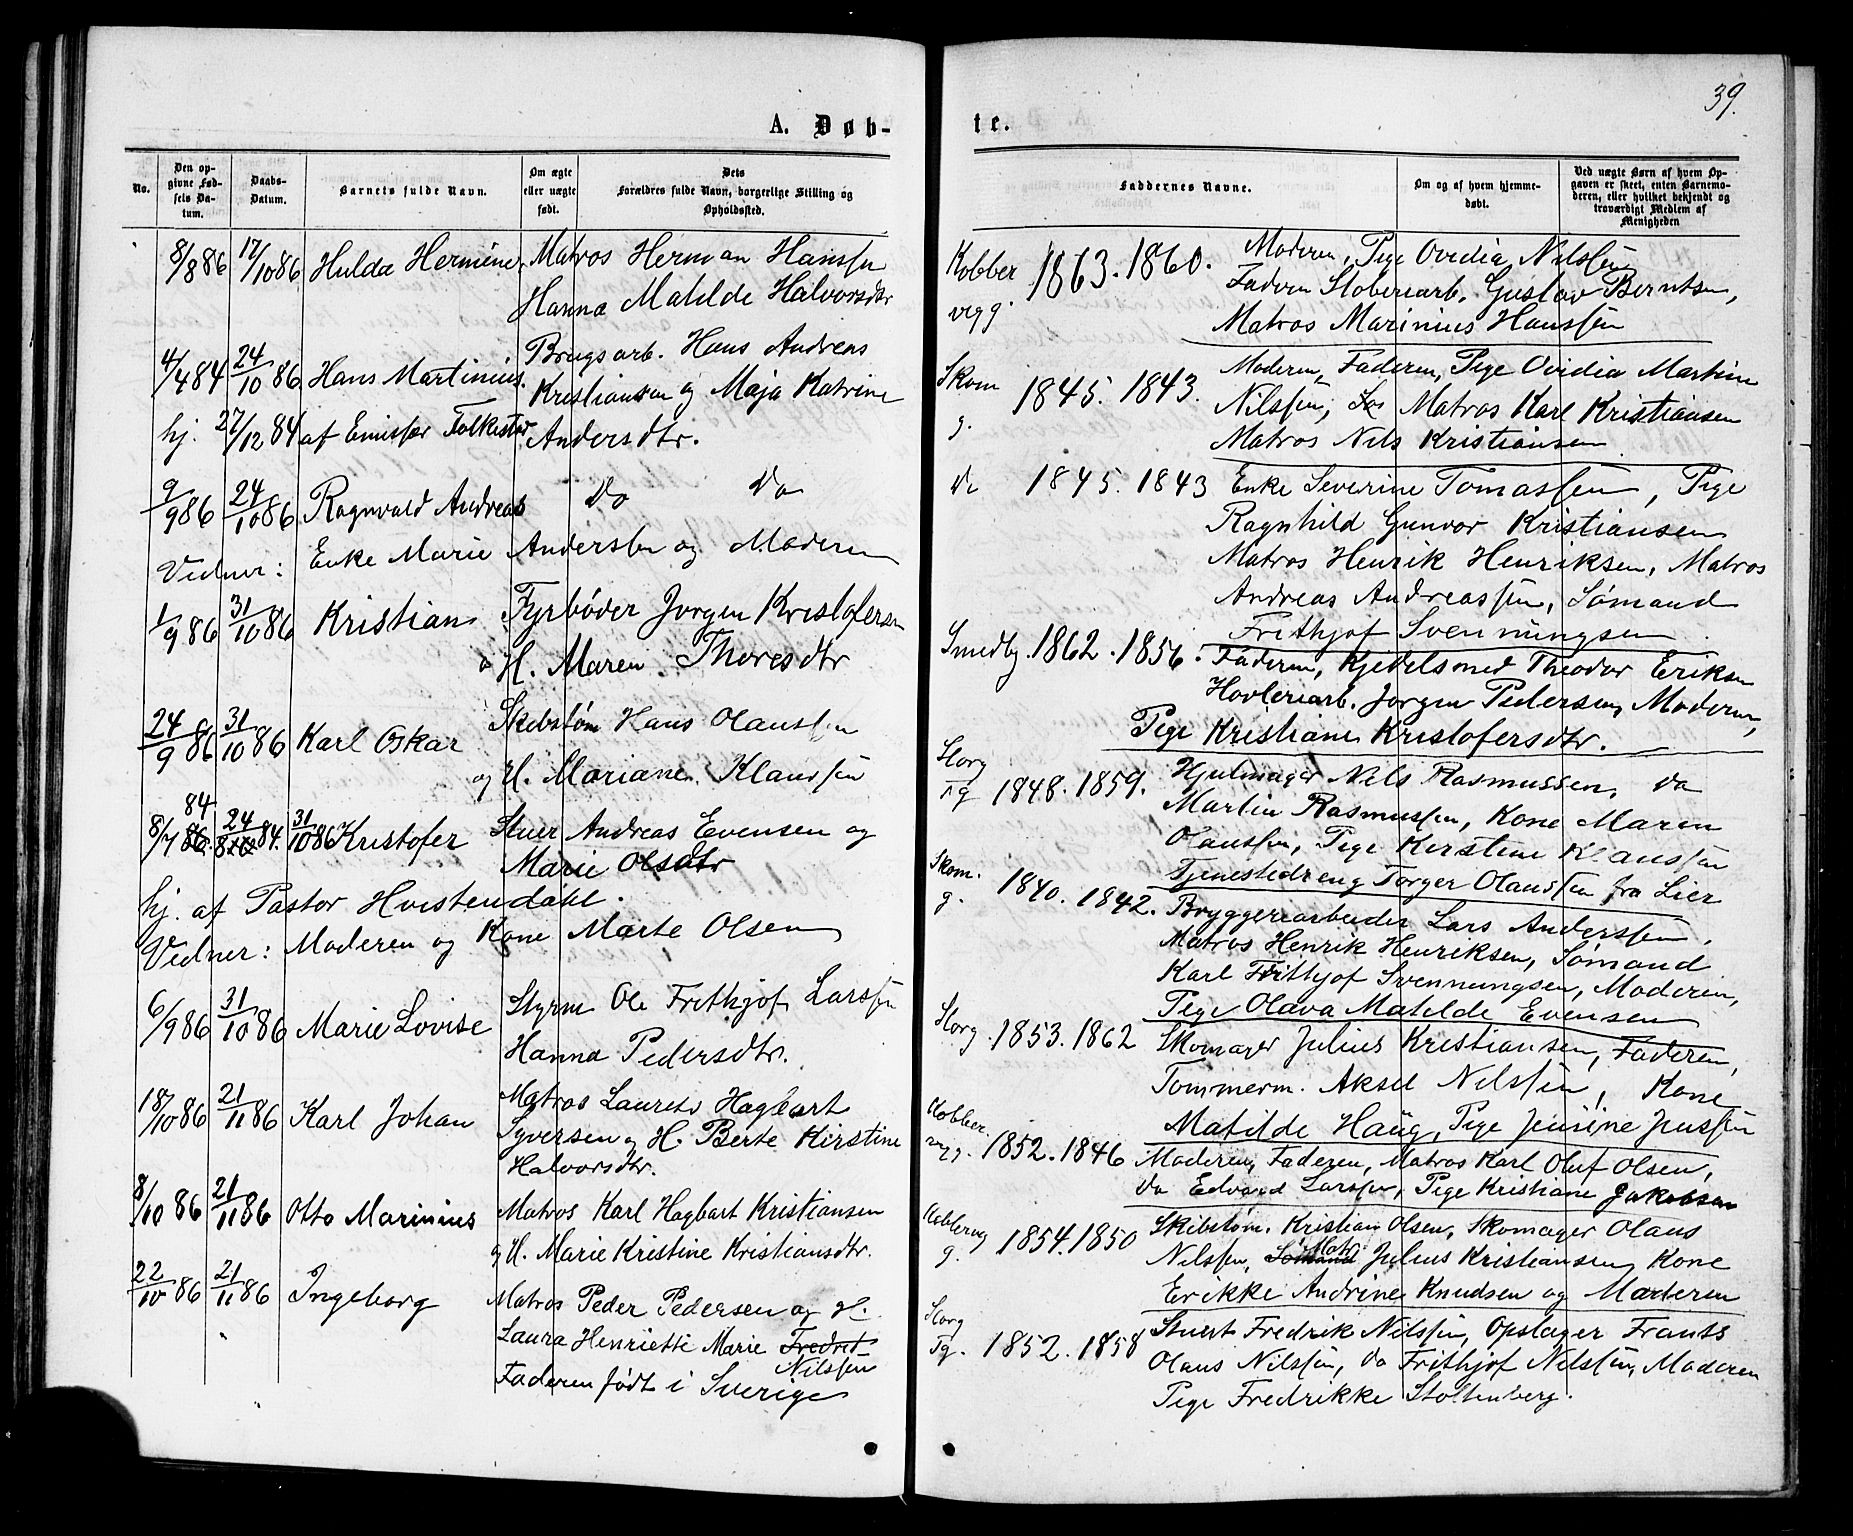 39.
A. Døb-
te.
No.
Den op-
givne Fød-
sels Da-
tum.
Daabs-
Datum.
Barnets fulde Navn.
Om ægte
eller uægte
født.
Dets
Forældres fulde Navn, borgerlige Stilling og
Opholdssted.
Faddernes Navne.
Om og af hvem hjemme-
døbt.
Ved uægte Børn af hvem Op-
gaven er skeet, enten Barnemo-
deren, eller hvilket bekjendt og
troværdigt Medlem af
Menigheden
8/8 86 17/10 86 Hulda Hermine, Matros Herman Hanssen
Hanna Matilde Halvorsdtr
4/4 84 24/10 86 Hans Martinius. Brugsarb. Hans Andreas
Kristiansen og Maja Katrine
hj. 27/12 84 af Emissær Folkestad Andersdtr.
9/9 86 24/10 86 Ragnvald Andreas Do Do
Vidner: Enke Marie Anderssen og Moderen
1/9 86 31/10 86 Kristian Fyrbøder Jørgen Kristofersen
o H. Maren Thoresdtr
24/9 86 31/10 86 Karl Oskar Skibstøm Hans Olaussen
og H. Mariane Klaussen
84
8/7 86. 24/8 84. 31/10 86 Kristofer Stuer Andreas Evensen og
Marie Olsdtr
hj. af Pastor Hvistendahl.
Vidner: Moderen og Kone Marte Olsen
6/9 86 31/10 86 Marie Lovise Styrm Ole Frithjof Larssen
Hanna Pedersdtr.
18/10 86 21/11 86 Karl Johan Matros Laurets Hagbart
Syversen og H. Berte Kirstine
Halvorsdtr.
8/10 86 21/11 86 Otto Marinius Matros Karl Hagbart Kristiansen
og H. Marie Kristine Kristiansdtr.
22/10 86 21/11 86 Ingeborg Matros Peder Pedersen og H.
Laura Henriette Marie Fredret
Nilssen
Faderen født i Sverige
Kobber
vigg 1863. 1860. Moderen, Pige Ovidia Nilssen
Faderen Støberiarb. Gustav Berntsen,
Matros Marinius Hanssen
Skom
g. 1845. 1843. Moderen, Faderen, Pige Ovidia Martine
Nilssen, Matros Karl Kristiansen
Matros Nils Kristiansen
Do 1845. 1843 Enke Severine Tomassen, Pige
Ragnhild Gunvor Kristiansen
Matros Henrik Henriksen, Matros
Andreas Andreassen, Sømand
Frithjof Svenningsen
Smedby. 1862. 1856. Faderen, Kjedelsmed Theodor Eriksen
Høvleriarb. Jørgen Pedersen, Moderen,
Pige Kristiane Kristofersdtr.
Storg
Tg 1848. 1859. Hjulmager Nils Rasmussen, Do
Martin Rasmussen, Kone Maren
Olaussen, Pige Kerstine Klaussen
Tjenestedreng Torger Olaussen fra Lier
Skom.
g. 1840. 1842. Bryggeriarbeider Lars Anderssen,
Matros Henrik Henriksen, Sømand
Karl Frithjof Svenningsen, Moderen,
Pige Olava Matilde Evensen
Storg. 1853. 1862 Skomager Julius Kristiansen, Faderen,
Tømmerm. Aksel Nilssen, Kone
Matilde Haug, Pige Jenine Jenssen
Kobber
vigg. 1852. 1846 Moderen, Faderen, Matros Karl Oluf Olsen,
Do Edvard Larssen, Pige Kristiane Jakobsen
Kobbervig
g. 1854. 1850 Skibstøm. Kristian Olsen, Skomager Olaus
Nilssen, Sømand Matr Julius Kristiansen, Kone
Erikke Andrine Knudsen og Moderen
Storg
Tg. 1852. 1858 Stuert Fredrik Nilssen, Opslager Frants
Olaus Nilssen, Do Frithjof Nilssen, Moderen
Pige Fredrikke Stoltenberg.